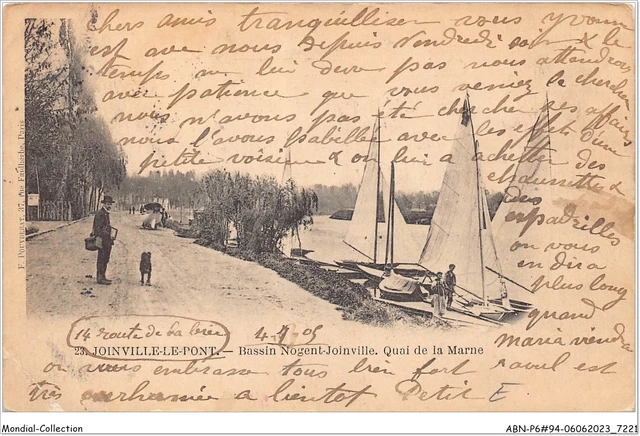 chers amis tranquilliser vous yvonne
est avec nous depuis Vendredi soir & le
temps ne lui dure pas nous attendrons
avec patience que vous veniez la chercher
nous n'avons pas été chercher ses affaires
nous l'avons habillée avec les effets d'une
petite voisine & on lui a acheter des
chaussettes &
des
espadrilles
on vous
en dira
plus long
quand
maria viendra
14 route de la
4 05
23. JOINVILLE-LE-PONT. — Bassin Nogent-Joinville. Quai de la Marne
on vous embrasse tous bien fort raoul est
très enrhumée a bientot Petit E
F. POUYDEBAT, 37, rue Faidherbe, Paris
Mondial-Collection
ABN-P6#94-06062023_7221